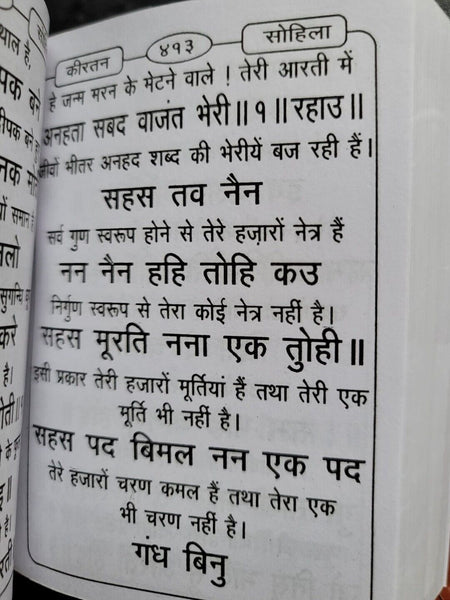 कीरतन
४१३
सोहिला
हे जन्म मरन के मेटने वाले ! तेरी आरती में
अनहता सबद वाजंत भेरी॥ १॥ रहाउ॥
जीवों भीतर अनहद शब्द की भेरीयें बज रही हैं।
सहस तव नैन
सर्व गुण स्वरूप होने से तेरे हज़ारों नेत्र हैं
नन नैन हहि तोहि कउ
निर्गुण स्वरूप से तेरा कोई नेत्र नहीं है।
सहस मूरति नना एक तुोही॥
इसी प्रकार तेरी हजारों मूर्तियां हैं तथा तेरी एक
मूर्ति भी नहीं है।
सहस पद बिमल नन एक पद
तेरे हजारों चरण कमल हैं तथा तेरा एक
भी चरण नहीं है।
गंध बिनु